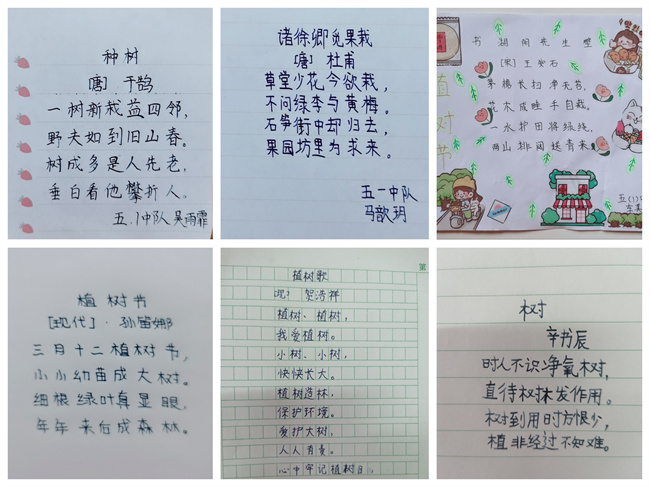 种树
[唐] 于鹄
一树新栽益四邻,
野夫如到旧山春。
树成多是人先老,
垂白看他攀折人。
五.1中队 吴雨霏
诣徐卿觅果栽
[唐] 杜甫
草堂少花今欲栽,
不问绿李与黄梅。
石笋街中却归去,
果园坊里为求来。
五一中队
马歆玥
书湖阴先生壁
[宋] 王安石
茅檐长扫净无苔,
花木成畦手自栽。
一水护田将绿绕,
两山排闼送青来。
植树节
五(1)
植树节
[现代]·孙笛娜
三月十二植树节,
小小幼苗成大树。
细根绿叶真显眼,
年年来后成森林。
第
植树歌
现 贺浩祥
植树、植树,
我爱植树。
小树、小树,
快快长大。
植树造林,
保护环境。
爱护大树,
人人有责。
心中牢记植树日
树
辛书辰
时人不识净氧树,
直待树林发作用。
树到用时方恨少,
植非经过不知难。